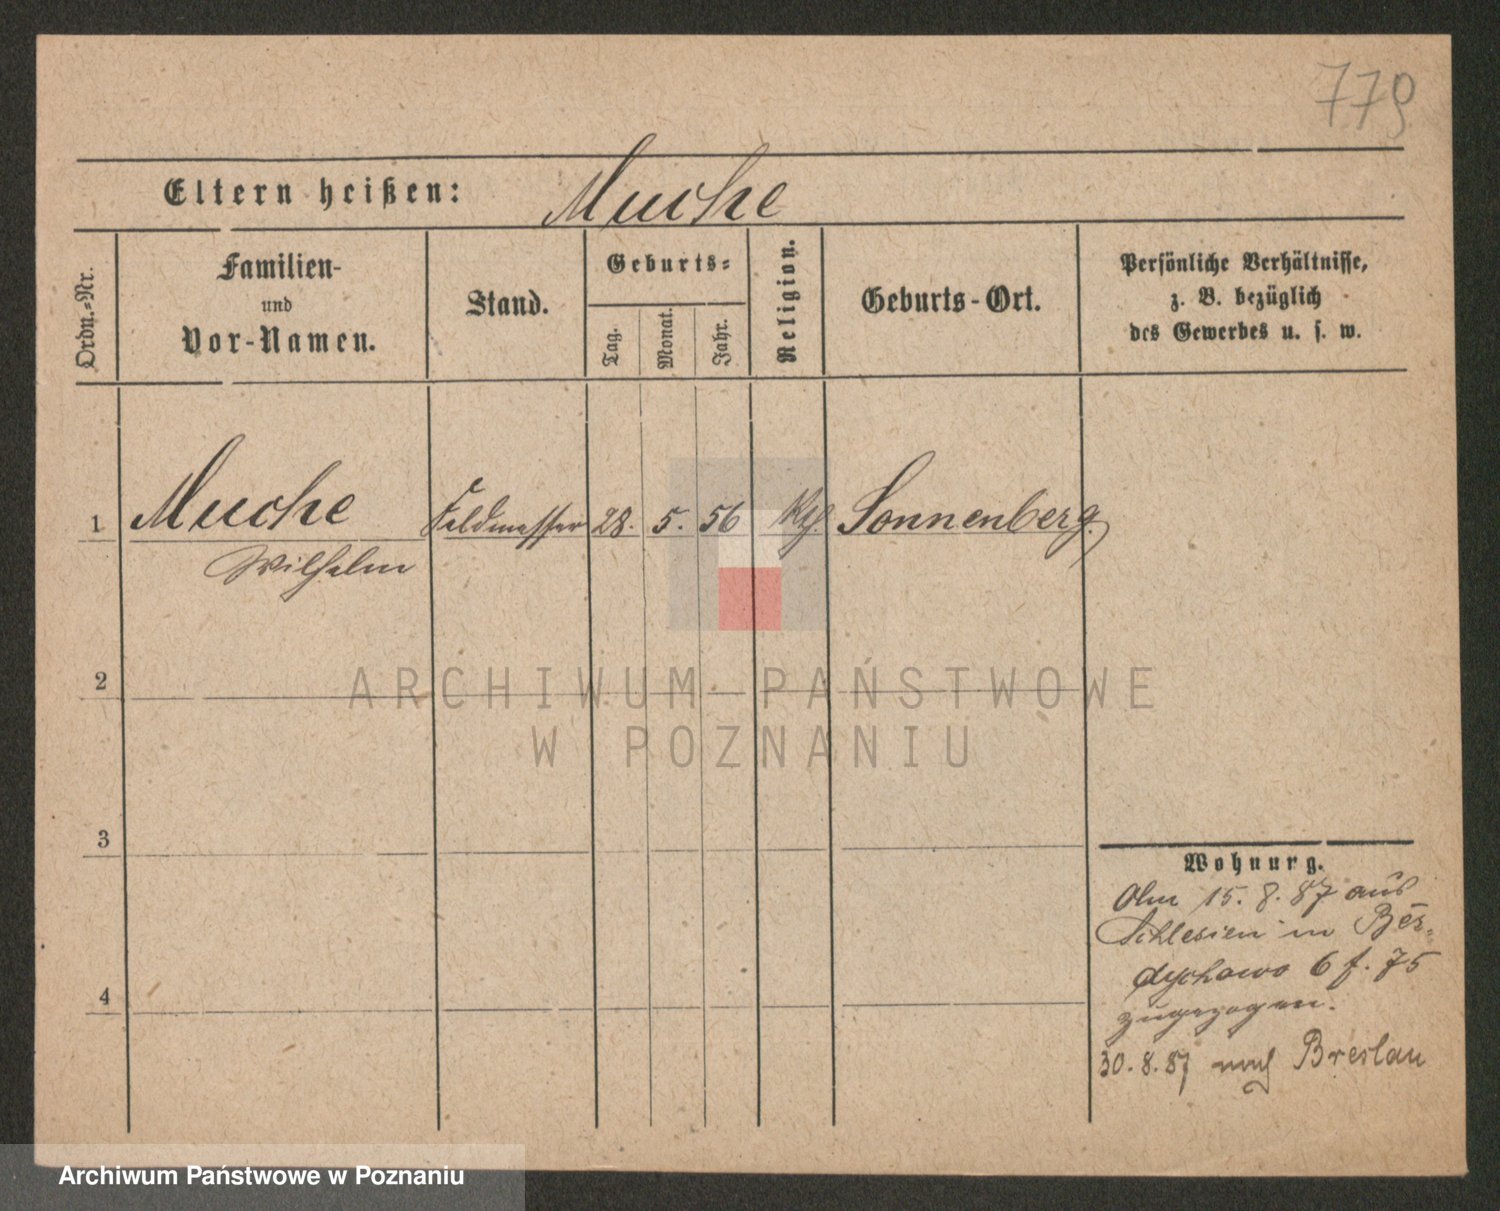 779
Eltern heißen: Muche
Ordn.-Nr.
Familien-
und
Vor-Namen.
Stand.
Geburts-
Tag.
Monat.
Jahr.
Religion.
Geburts-Ort.
Persönliche Verhältnisse,
z. B. bezüglich
des Gewerbes u. s. w.
1 Muche Feldmesser 28. 5. 56 Sonnenberg.
Wilhelm
2
3
4
Wohnurg.
15. 8. 87 aus
Schlesien in Ber-
dychowo 6 f. 75
zugezogen.
30. 8. 87 nach Breslau
ARCHIWUM PAŃSTWOWE
W POZNANIU
Archiwum Państwowe w Poznaniu